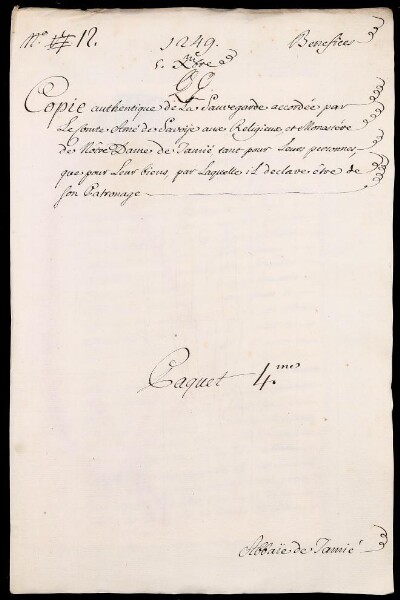 N.º 12. 1249. Benefices
5. Xbre
Copie authentique de La Sauvegarde accordée par
Le Comte Amé de Savoije aux Religieux et Monastére
de Nôtre Dame de Tamié, tant pour Leurs personnes,
que pour Leur biens, par Laquelle il déclare être de
son Patronage
Paquet 4.mes
Abbaïe de Tamié